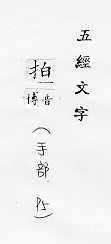 五經文字
拍
博音
(手部 P5)